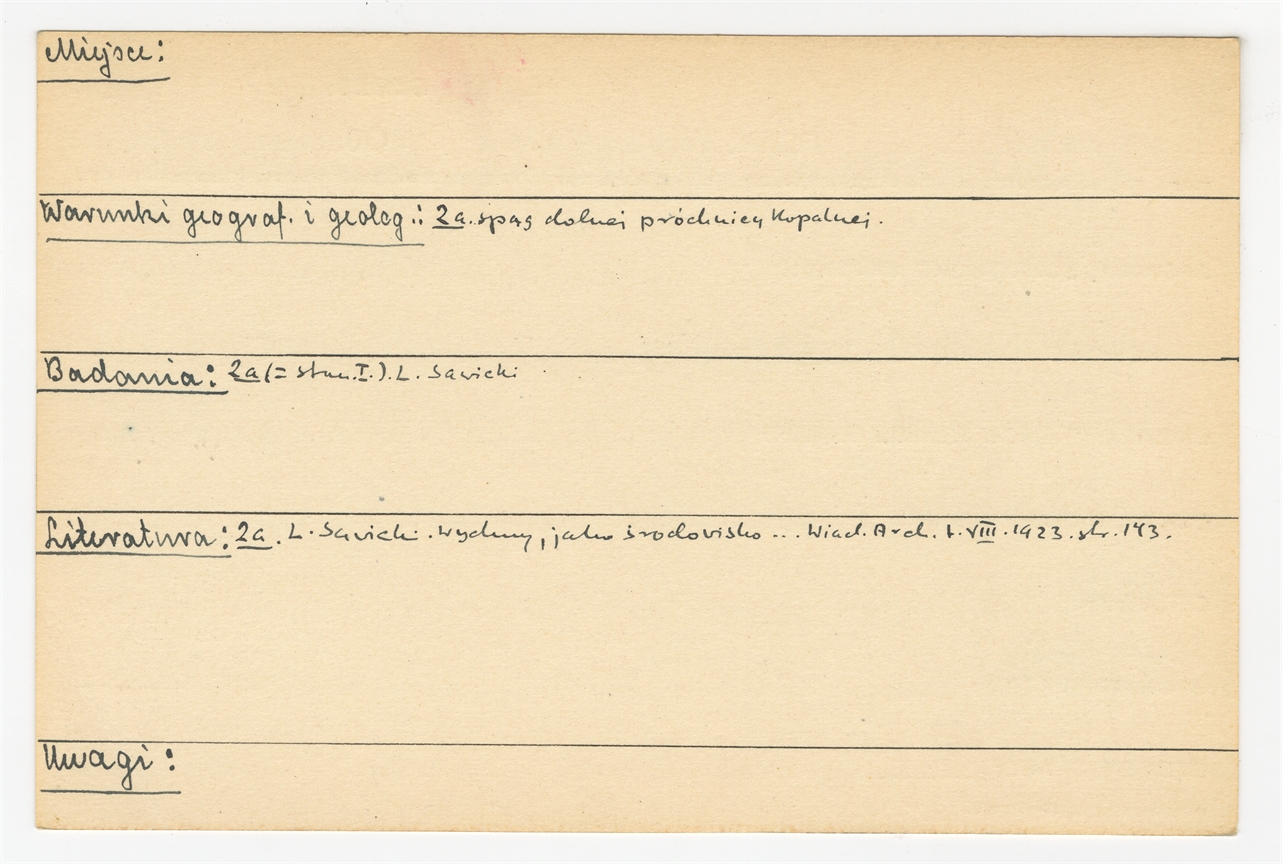 Miejsce:
Warunki geograf. i geolog.: 2a. spąg dolnej próchnicy kopalnej.
Badania: 2a (= stan. I.). L. Sawicki
Literatura: 2a. L. Sawicki. Wydmy, jako środowisko ... Wiad. Arch. t. VIII. 1923. str. 143.
Uwagi: